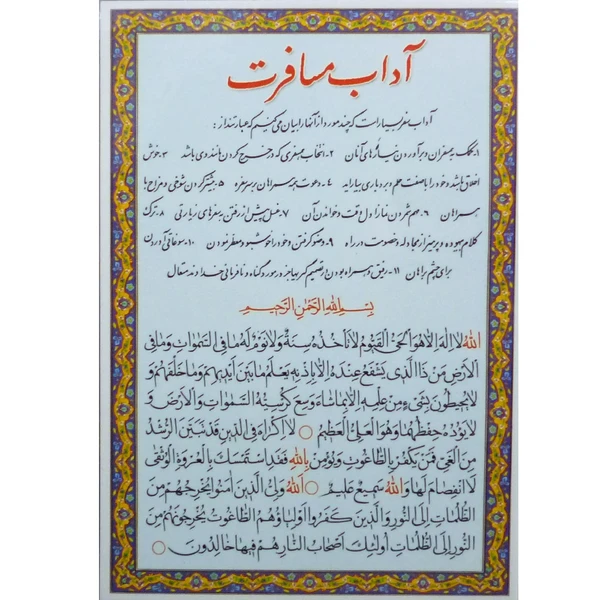 آداب مسافرت
آداب سفر بسیار است که چند مورد از آنها را بیان می کنیم که عبارتند از :
۱- کمک به همسفران و برآوردن نیازهای آنان ۲- انتخاب همسفری که در خرج کردن مانند وی باشد ۳- خوش
اخلاق باشد و خود را با صفت حلم و بردباری بیاراید ۴- دعوت همه همراهان بر سر سفره ۵- بیشتر کردن شوخی و مزاح با
همراهان ۶- مهم شمردن نماز اول وقت و خواندن آن ۷- غسل پیش از رفتن به سفرهای زیارتی ۸- ترک
کلام بیهوده و پرهیز از مجادله و خصومت در راه ۹- وضو گرفتن و خود را خوشبو و معطر نمودن ۱۰- سوغاتی آوردن
برای چشم براهان ۱۱- رفیق و همراه بودن در تصمیم گیریها بجز در مورد گناه و نافرمانی خداوند متعال
بسم الله الرحمن الرحیم
اللهُ لا اِلهَ اِلّا هُوَ الحَیُّ القَیّومُ لا تَأخُذُهُ سِنَةٌ وَلا نَومٌ لَهُ ما فِی السَّمواتِ وَما فِی
الاَرضِ مَن ذَا الَّذی یَشفَعُ عِندَهُ اِلّا بِاِذنِهِ یَعلَمُ ما بَینَ اَیدیهِم وَما خَلفَهُم وَ
لا یُحیطونَ بِشَیءٍ مِن عِلمِهِ اِلّا بِما شاءَ وَسِعَ کُرسِیُّهُ السَّمواتِ وَالاَرضَ وَ
لا یَؤدُهُ حِفظُهُما وَهُوَ العَلِیُّ العَظیمُ لا اِکراهَ فِی الدّینِ قَد تَبَیَّنَ الرُّشدُ
مِنَ الغَیِّ فَمَن یَکفُر بِالطّاغوتِ وَیُؤمِن بِاللهِ فَقَدِ استَمسَکَ بِالعُروَةِ الوُثقی
لا انفِصامَ لَها وَاللهُ سَمیعٌ عَلیمٌ اَللهُ وَلِیُّ الَّذینَ آمَنوا یُخرِجُهُم مِنَ
الظُّلُماتِ اِلَی النّورِ وَالَّذینَ کَفَروا اَولِیاؤُهُمُ الطّاغوتُ یُخرِجونَهُم مِنَ
النّورِ اِلَی الظُّلُماتِ اُولئِکَ اَصحابُ النّارِ هُم فیها خالِدونَ